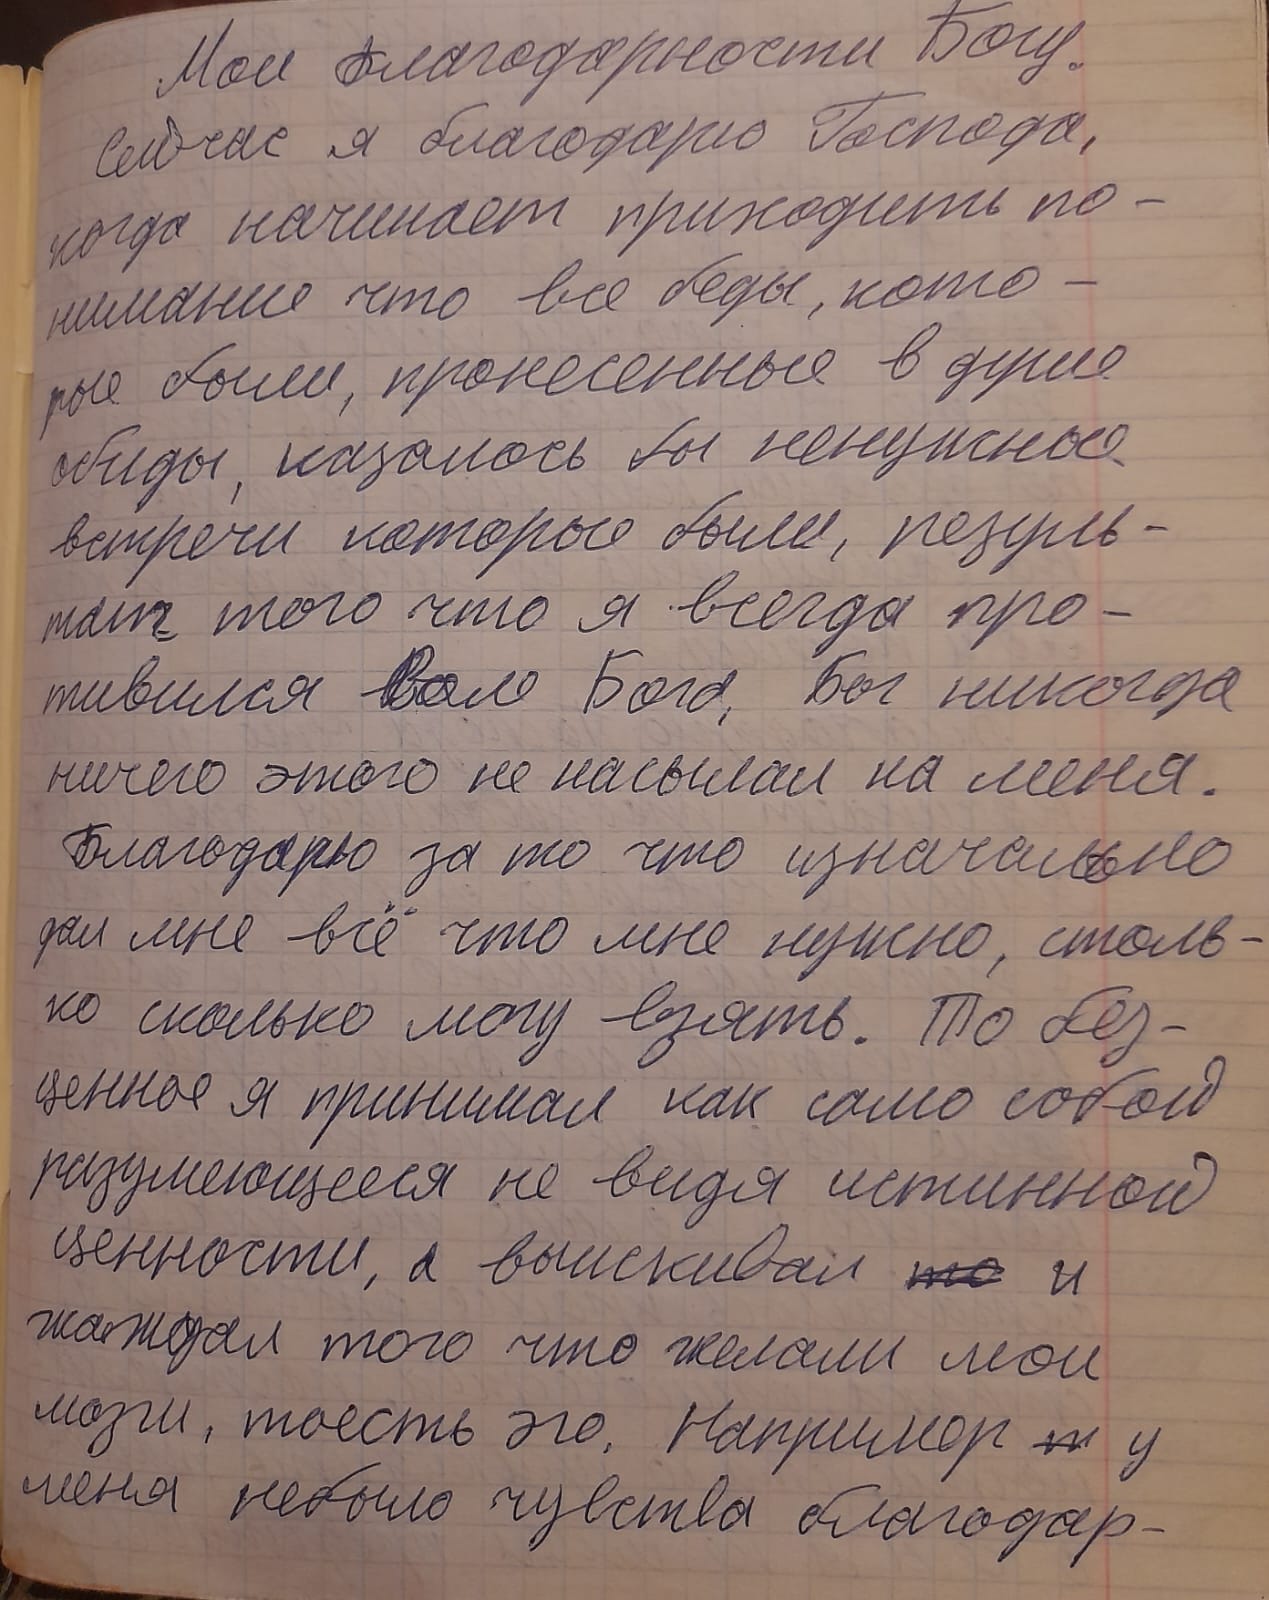 Мои благодарности Богу.
Сейчас я благодарю Господа,
когда начинает приходить по-
нимание что все беды, кото-
рые были, пронесенные в душе
обиды, казалось бы ненужные
встречи которые были, резуль-
тат того что я всегда про-
тивился Воле Бога, Бог никогда
ничего этого не насылал на меня.
Благодарю за то что изначально
дал мне всё что мне нужно, столь-
ко сколько могу взять. То без-
ценное я принимал как само собой
разумеющееся не видя истинной
ценности, а выискивал то и
жаждал того что желали мои
мозги, тоесть эго. Например т у
меня небыло чувства благодар-